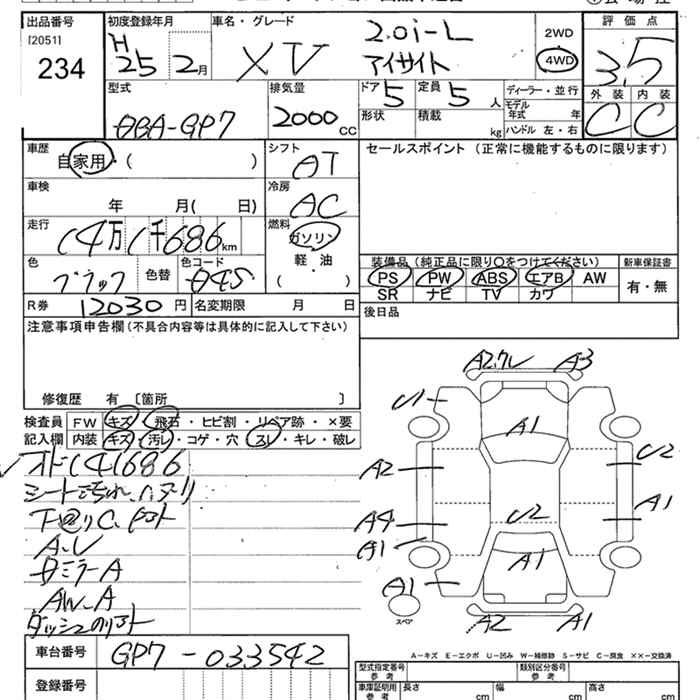 出品番号
[2051]
234
初度登録年月
H
25 2月
車名・グレード
XV
2.0i-L
アイサイト
2WD
4WD
評価点
3.5
外装 内装
C C
型式
DBA-GP7
排気量
2000 CC
ドア 5
定員 5 人
形状
積載 kg
ディーラー・並行
モデル年式 年
ハンドル 左・右
車歴
自家用・( )
シフト
AT
セールスポイント (正常に機能するものに限ります)
車検
年 月( 日)
冷房
AC
走行
(4万(千686km
燃料
ガソリン
軽・油
( )
色
ブラック
色替
色コード
D4S
装備品 (純正品に限り○をつけてください)
PS PW ABS エアB AW
SR ナビ TV カワ
新車保証書
有・無
R券 12030 円
名変期限 月 日
後日品
注意事項申告欄 (不具合内容等は具体的に記入して下さい)
修復歴 有 〔箇所 〕
検査員記入欄
FW キズ・飛石・ヒビ割・リペア跡・×要
内装 キズ・汚レ・コゲ・穴・スレ・キレ・破レ
シート汚れ、ハヌリ
A.U
AW-A
A2
A3
U1
A1
A2
U2
A4
A1
A1
U2
A1
A1
スペア
A2
A1
A-キズ E-エクボ U-凹み W-補修跡 S-サビ C-腐食 ××-交換済
車台番号
GP7-033542
登録番号
型式指定番号
参考
類別区分番号
参考
車庫証明用
参考
長さ cm
幅 cm
高さ cm